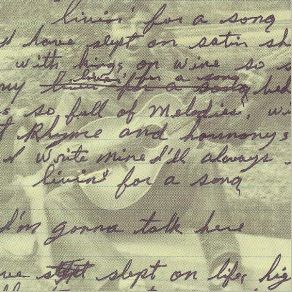 livin' for a song
have slept on satin sh
with kings on wine so s
my livin' for a song hed
so full of melodies, w
Rhyme and harmony
write mine I'd always
livin' for a song
I'm gonna talk here
ve slept slept on life, hig